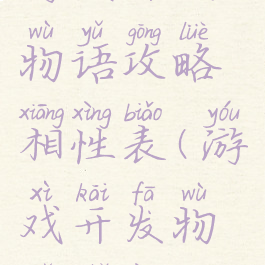 wù yǔ gōng lüè
物语攻略
xiāng xìng biǎo yóu
相性表(游
xì kāi fā wù
戏开发物